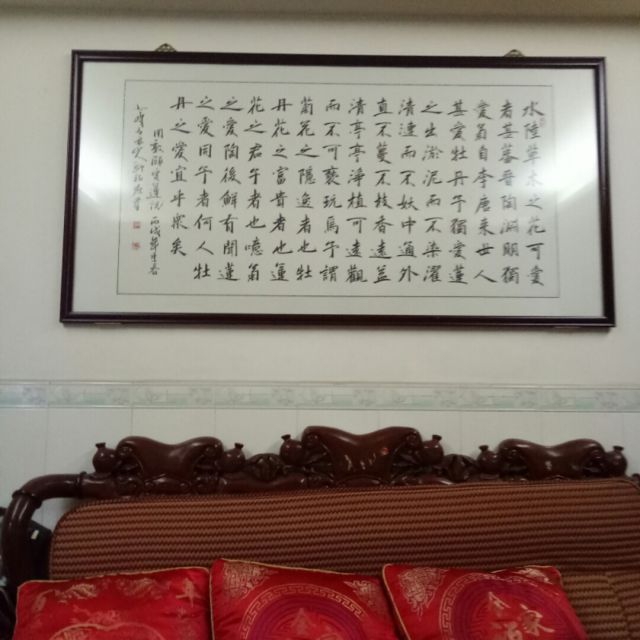 水陸草木之花可愛
者甚蕃晉陶淵明獨
愛菊自李唐來世人
甚愛牡丹予獨愛蓮
之出淤泥而不染濯
清漣而不妖中通外
直不蔓不枝香遠益
清亭亭淨植可遠觀
而不可褻玩焉予謂
菊花之隱逸者也牡
丹花之富貴者也蓮
花之君子者也噫菊
之愛陶後鮮有聞蓮
之愛同予者何人牡
丹之愛宜乎眾矣
周敦頤愛蓮說丙戌